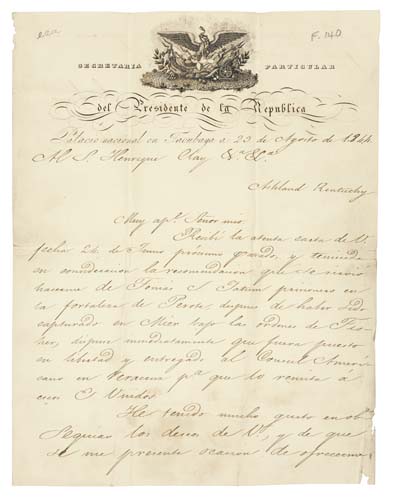 F. 140
SECRETARIA PARTICULAR
del Presidente de la Republica
Palacio nacional en Tacubaya a 23 de Agosto de 1844.
Al S. Henrique Clay &ª &ª
Ashland Kentucky
Muy apº. Señor mio
Recibí la atenta carta de V.
fecha 24 de Junio próximo pasado, y teniendo
en consideracion la recomendacion que se sirvió
hacerme de Tomás S. Tatum prisionero en
la fortaleza de Perote, despues de haber sido
capturado en Mier bajo las ordenes de Fis-
her, dispuse inmediatamente que fuera puesto
en libertad y entregado al Consul Ameri-
cano en Veracruz pª que lo remita á
esos Es. Unidos.
He tenido mucho gusto en ob-
sequiar los deseos de V., y de que
se me presente ocasion de ofrecerme